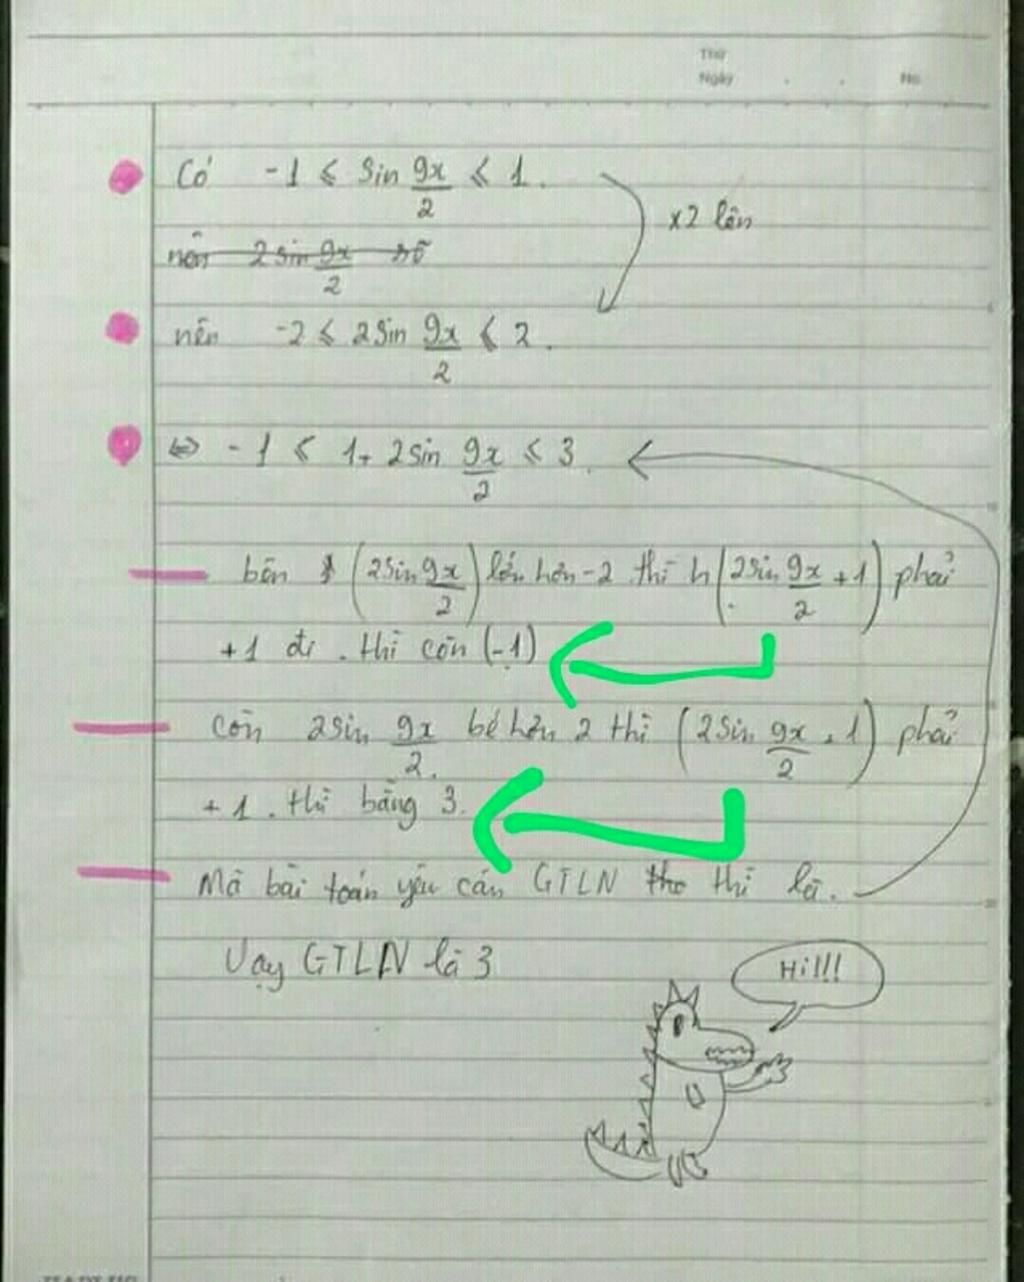 Thứ
Ngày . . No
Có -1 ⩽ sin 9x/2 ⩽ 1.
x2 lên
nên 2 sin 9x/2
nên -2 ⩽ 2sin 9x/2 ⩽ 2.
⇔ -1 ⩽ 1+ 2sin 9x/2 ⩽ 3.
bên (2sin 9x/2) lớn hơn -2 thì h (2sin 9x/2 +1) phải
+1 đi . thì còn (-1)
còn 2sin 9x/2 bé hơn 2 thì (2sin 9x/2 + 1) phải
+ 1 . thì bằng 3.
Mà bài toán yêu cầu GTLN thì là.
Vậy GTLN là 3
Hi!!!